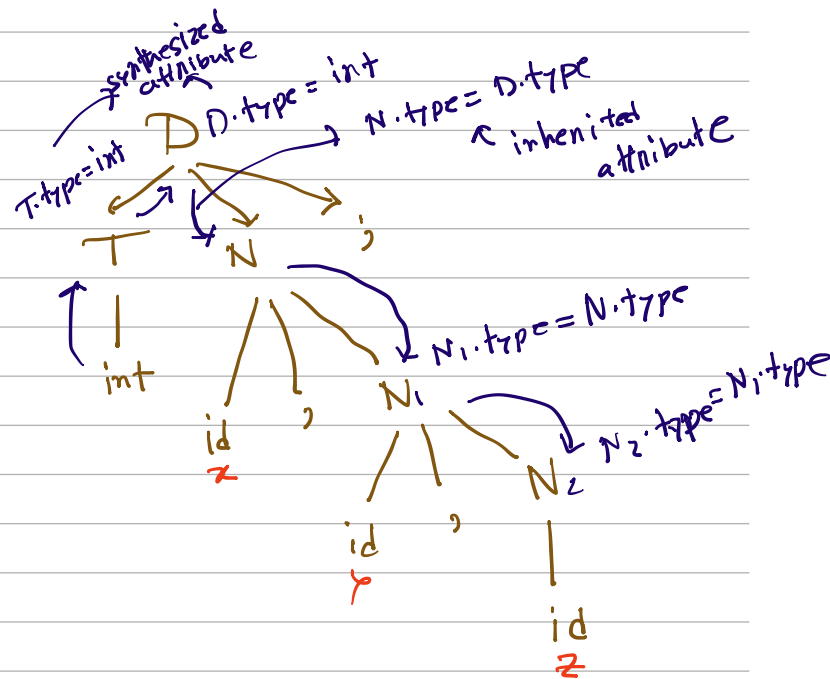 synthesized
attribute
D D.type = int
N.type = D.type
inherited
attribute
T.type=int
T N ;
int
N₁.type = N.type
id , N₁
x
N₂.type = N₁.type
id , N₂
y
id
z